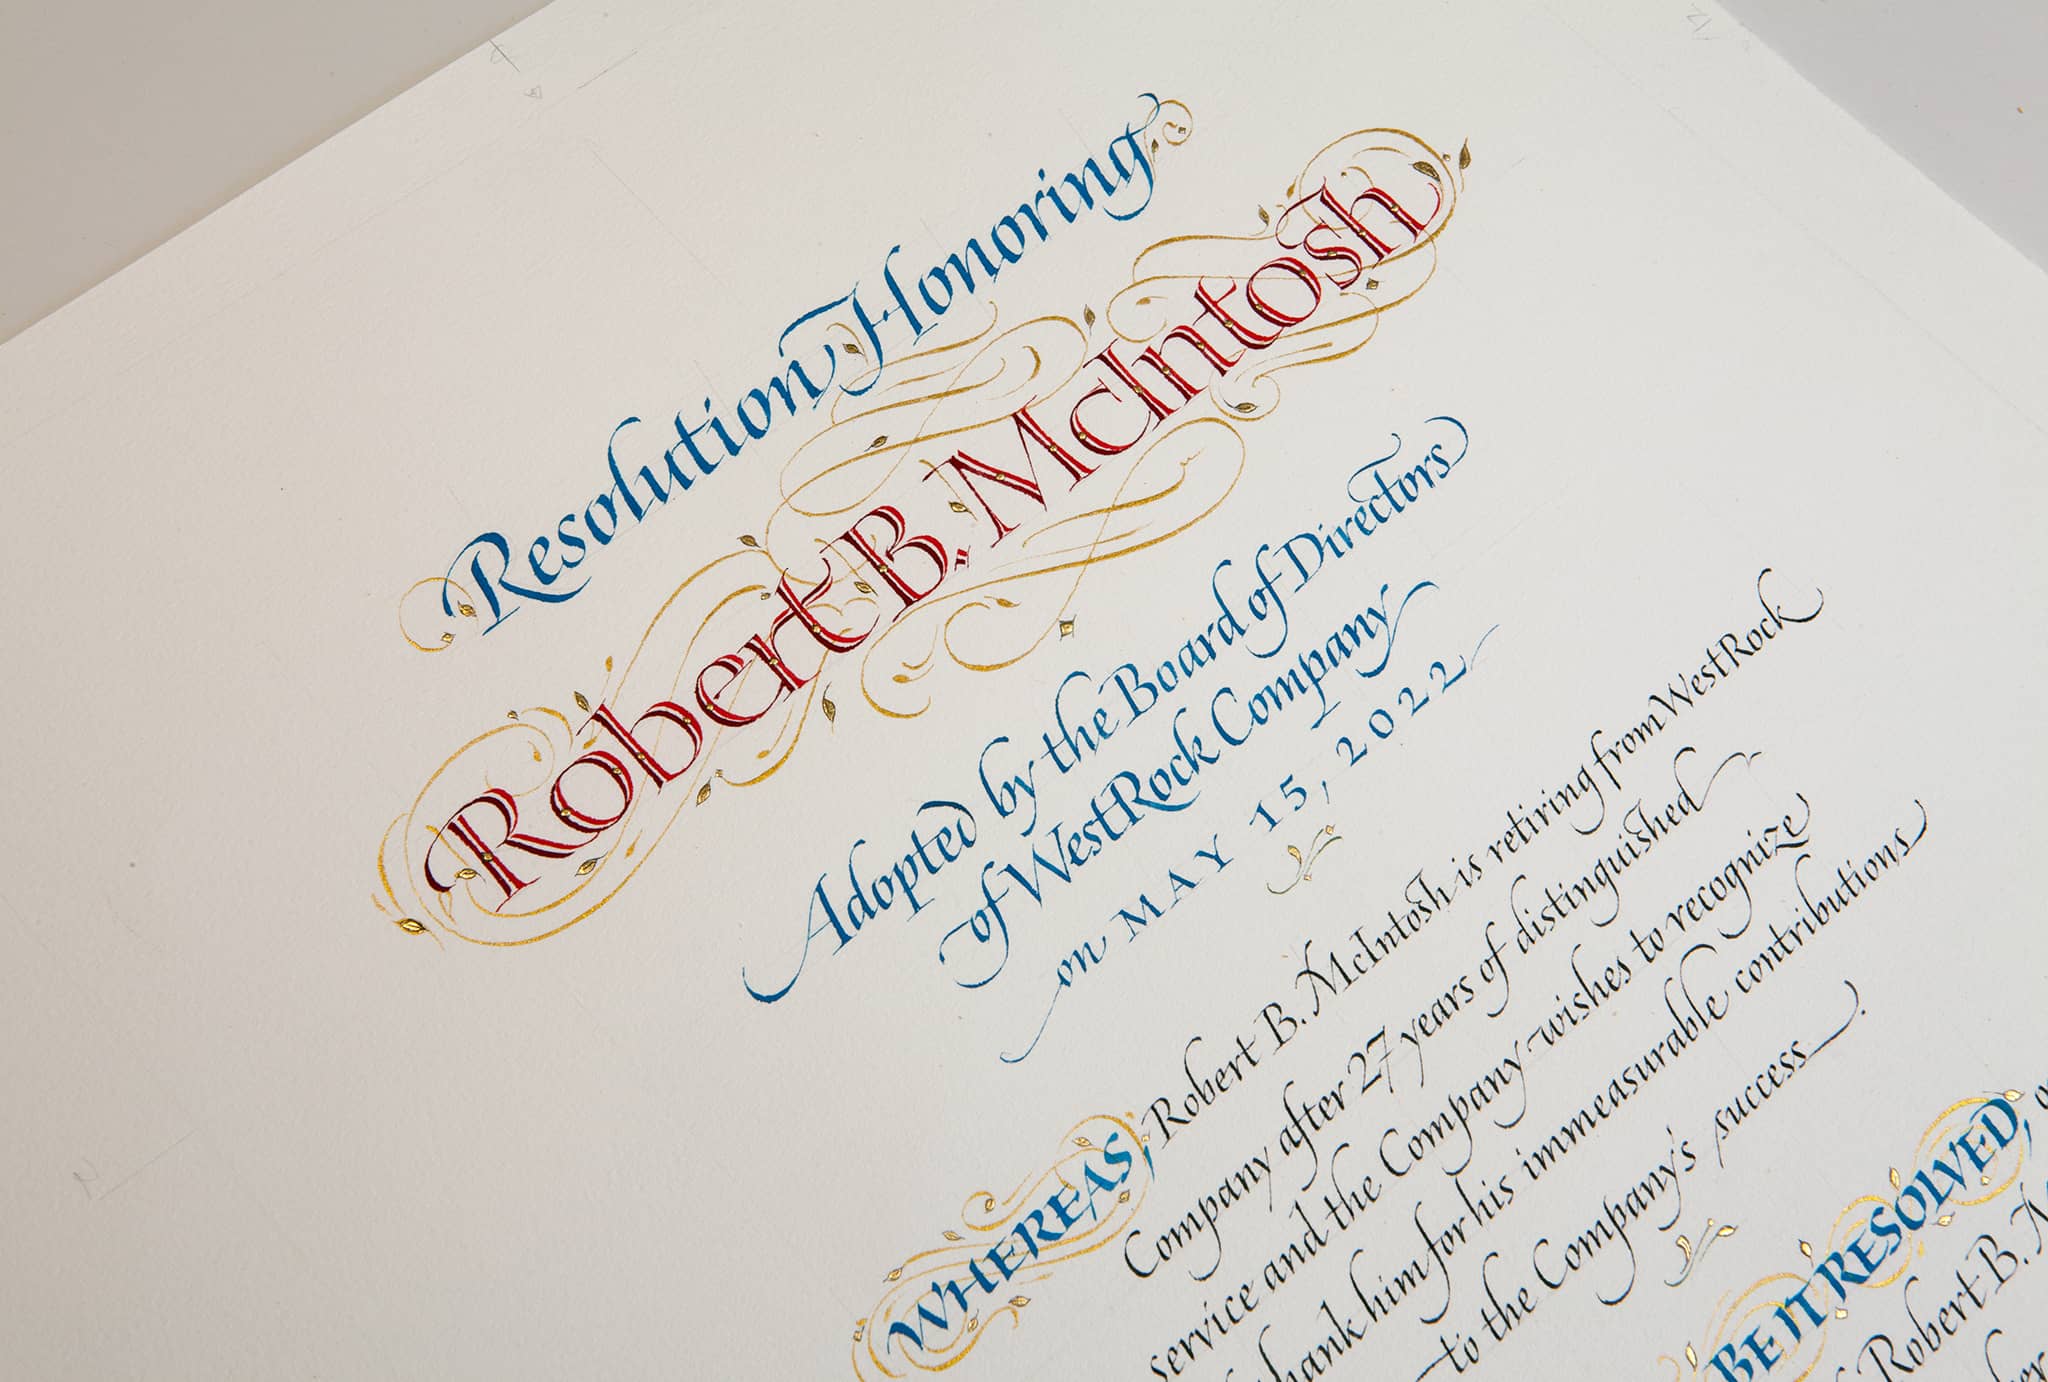 Resolution Honoring
Robert B. McIntosh
Adopted by the Board of Directors
of WestRock Company
on MAY 15, 2022
WHEREAS, Robert B. McIntosh is retiring from WestRock
Company after 27 years of distinguished
service and the Company wishes to recognize
thank him for his immeasurable contributions
to the Company's success.
BE IT RESOLVED,
Robert B.